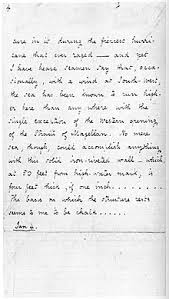 4
sure in it during the fiercest hurri-
cane that ever raged — and yet
I have heard seamen say that, occa-
sionally, with a wind at South-West,
the sea has been known to run high-
er here than any where with the
single exception of the Western opening
of the Strait of Magellan. No mere
sea, though, could accomplish anything
with this solid iron-riveted wall — which,
at 50 feet from high-water mark, is
four feet thick, if one inch.......
The basis on which the structure rests
seems to me to be chalk......
Jan 4.